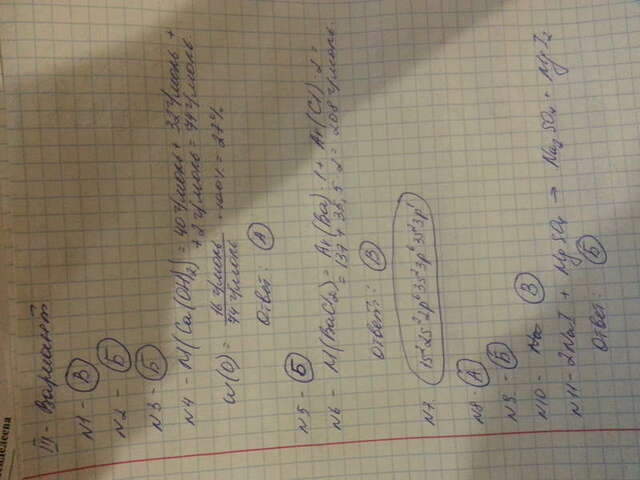 III - Вариант
N1 - В
N2 - Б
N3 - Б
N4 - M(Ca(OH)2) = 40 г/моль + 32 г/моль +
+ 2 г/моль = 74 г/моль
w(O) = 16 г/моль / 74 г/моль · 100% = 27%
Ответ: А
N5 - Б
N6 - M(BaCl2) = Ar(Ba)·1 + Ar(Cl)·2 =
= 137 + 35,5·2 = 208 г/моль
Ответ: В
N7.
N8 - А
N9 - Б
N10 - В
N11 - 2NaI + MgSO4 → Na2SO4 + MgI2
Ответ: Б